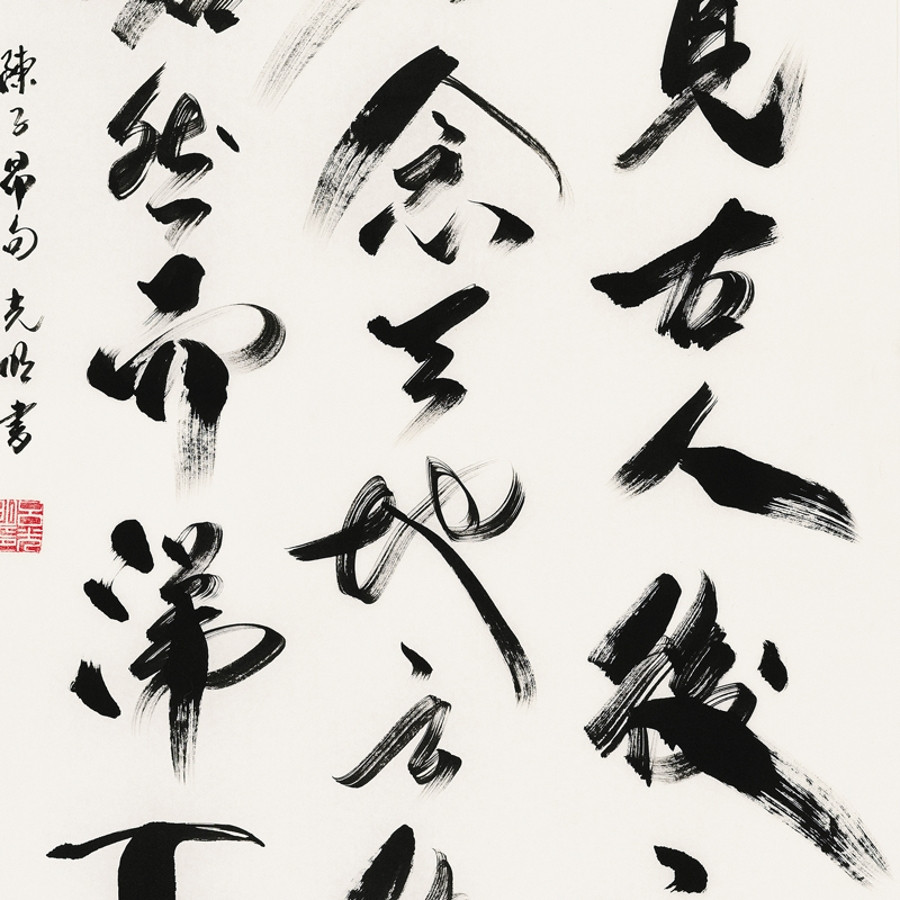 見古人後
念天地之
然而涕下
陳子昂句 光明書